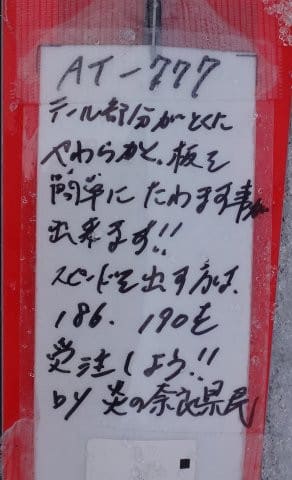 AT-777
テール部分がとくに
やわらかく、板を
簡単にたわます事が
出来ます!!
スピードを出す方は、
186. 190を
受注しよう!!
by 炎の奈良県民